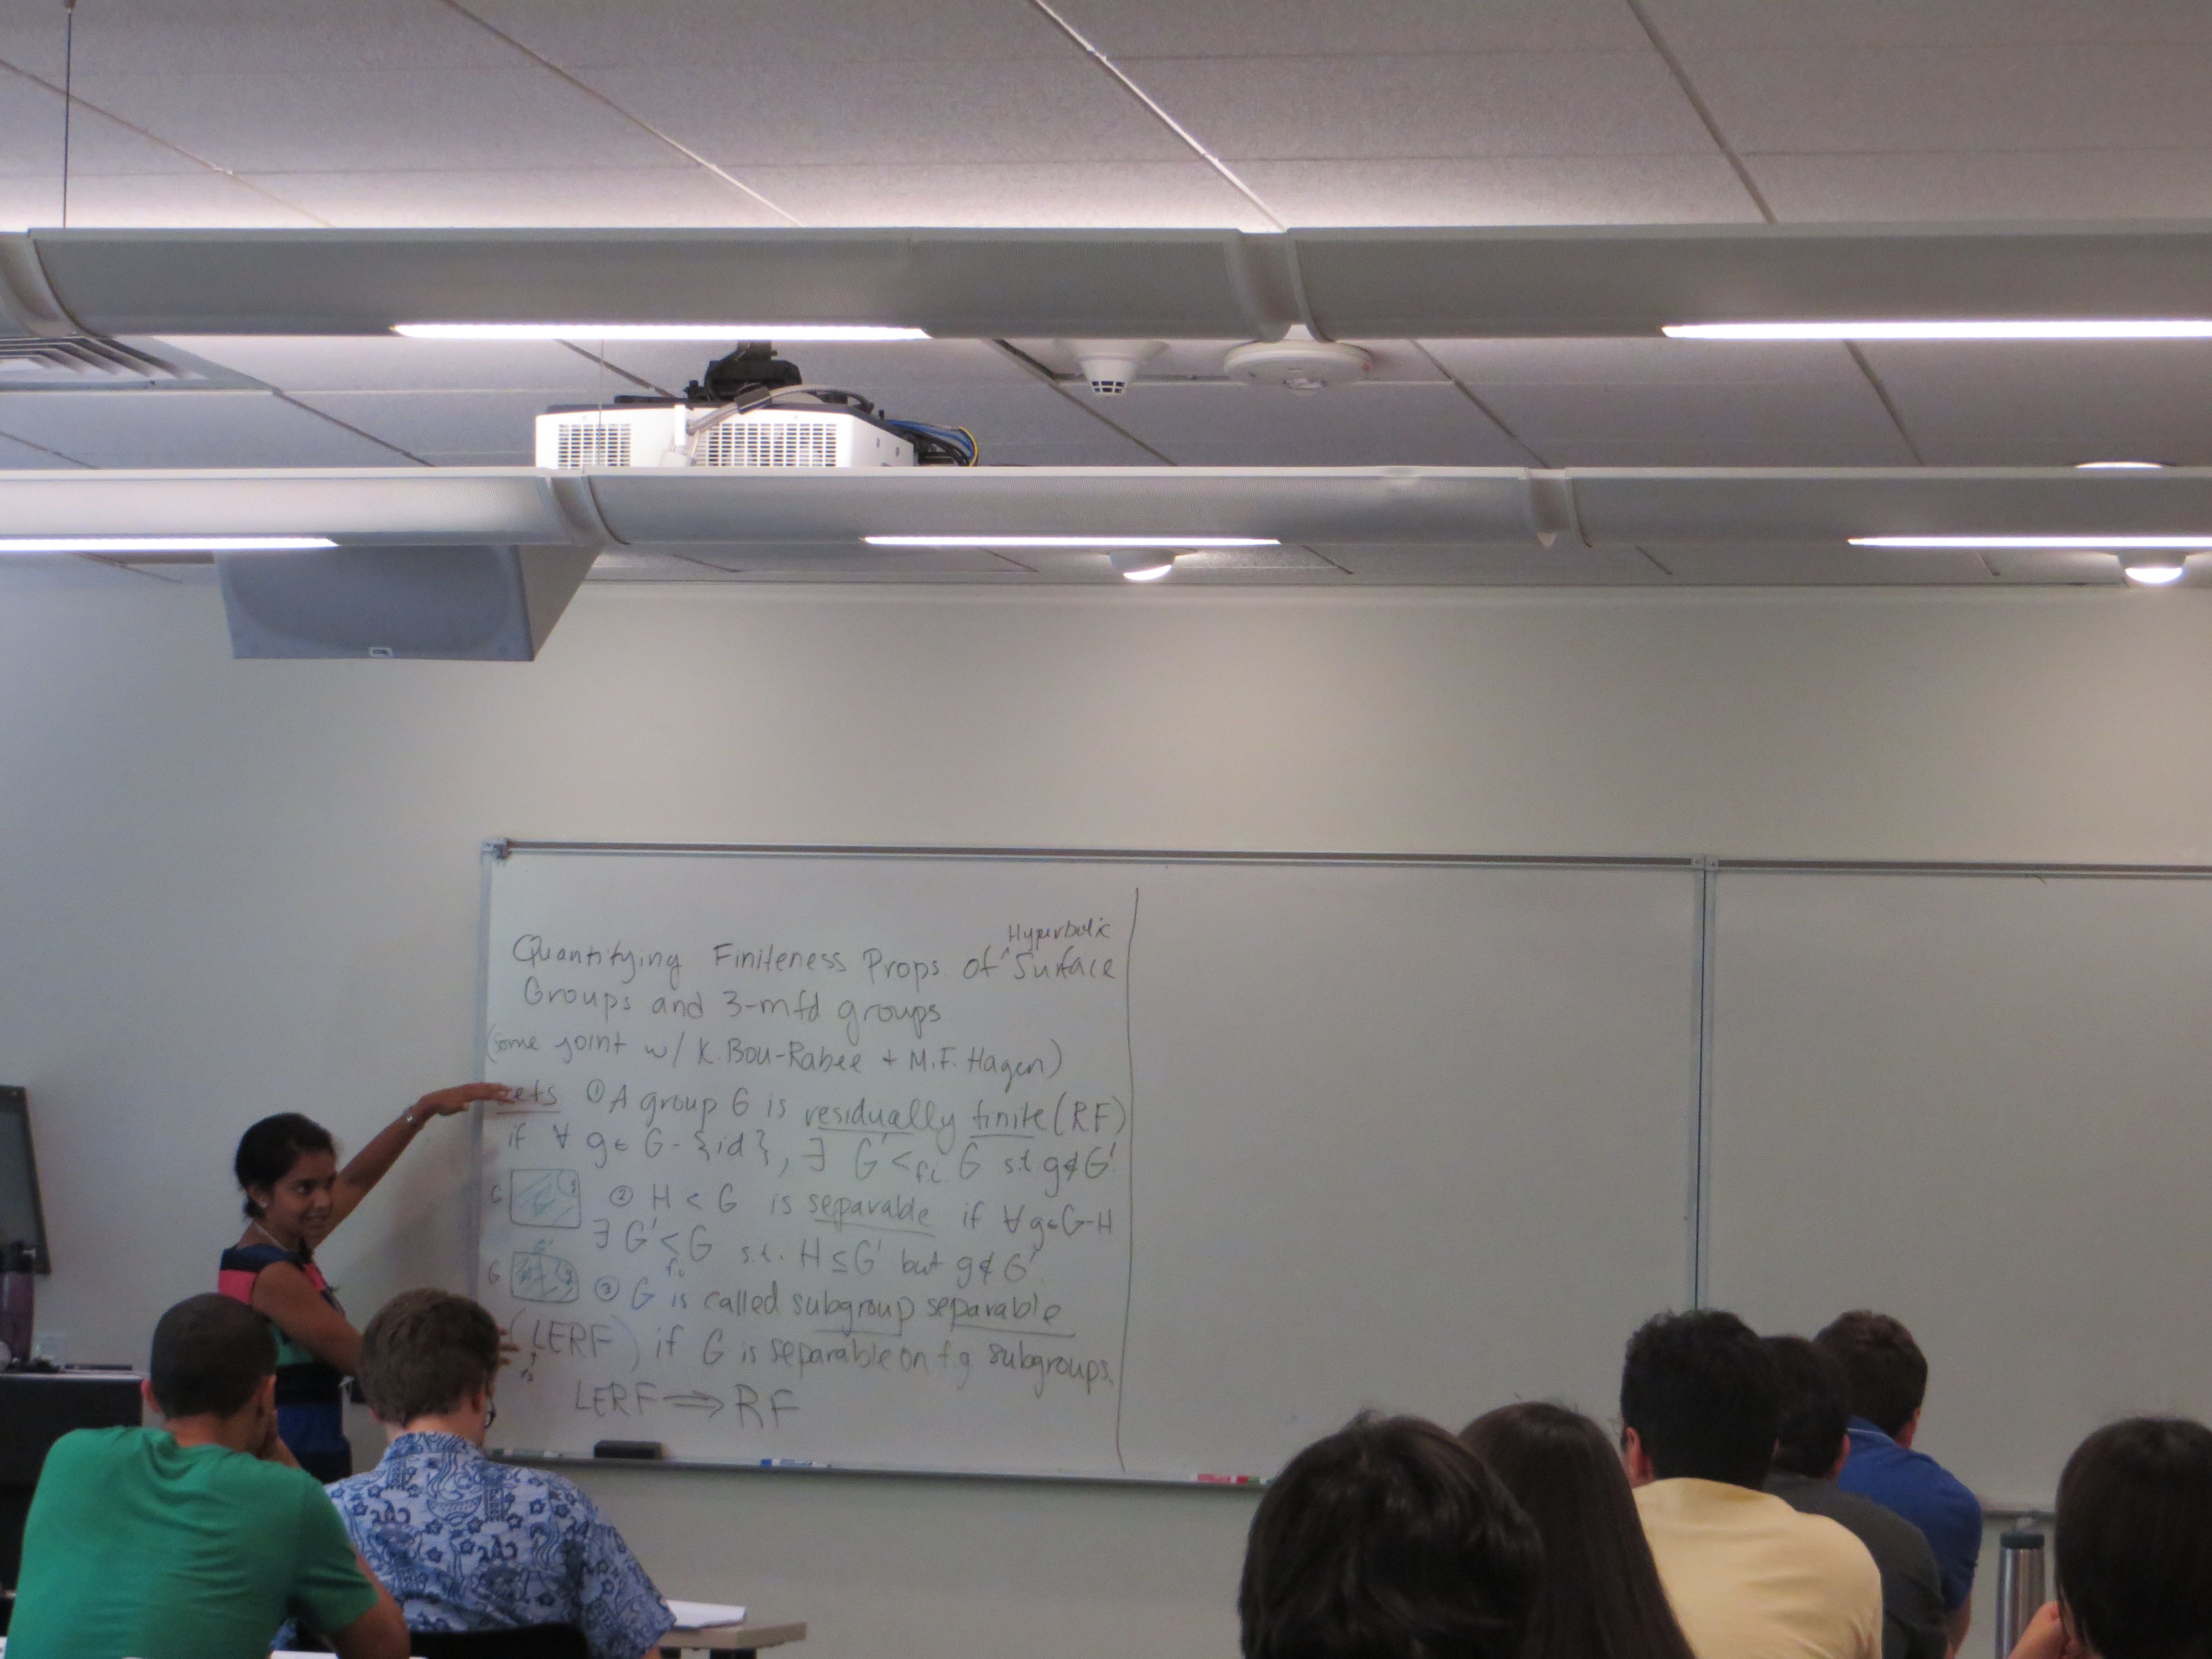 Hyperbolic
Quantifying Finiteness Props. of ^ Surface
Groups and 3-mfd groups
(some joint w/ K. Bou-Rabee + M.F. Hagen)
① A group G is residually finite (RF)
if ∀ g ∈ G - {id}, ∃ G' <f.i. G s.t g ∉ G'
G g ② H < G is separable if ∀ g ∈ G-H
∃ G' <f.i. G s.t. H ≤ G' but g ∉ G'
G g ③ G is called subgroup separable
(LERF) if G is separable on f.g subgroups.
LERF ⟹ RF